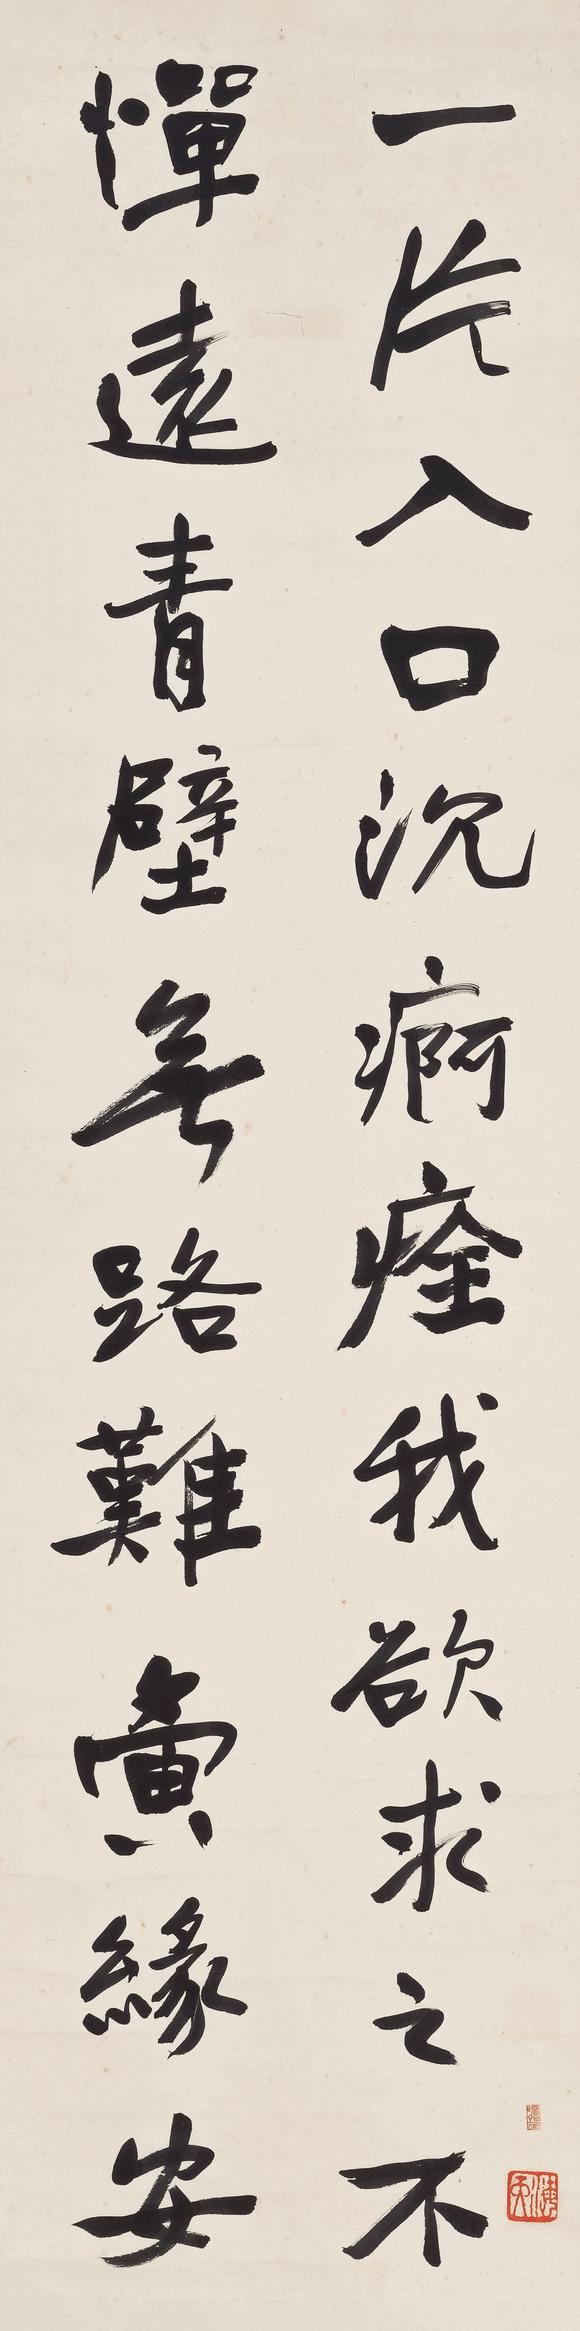 一片入口沉痾痊我欲求之不
憚遠青壁無路難夤緣安